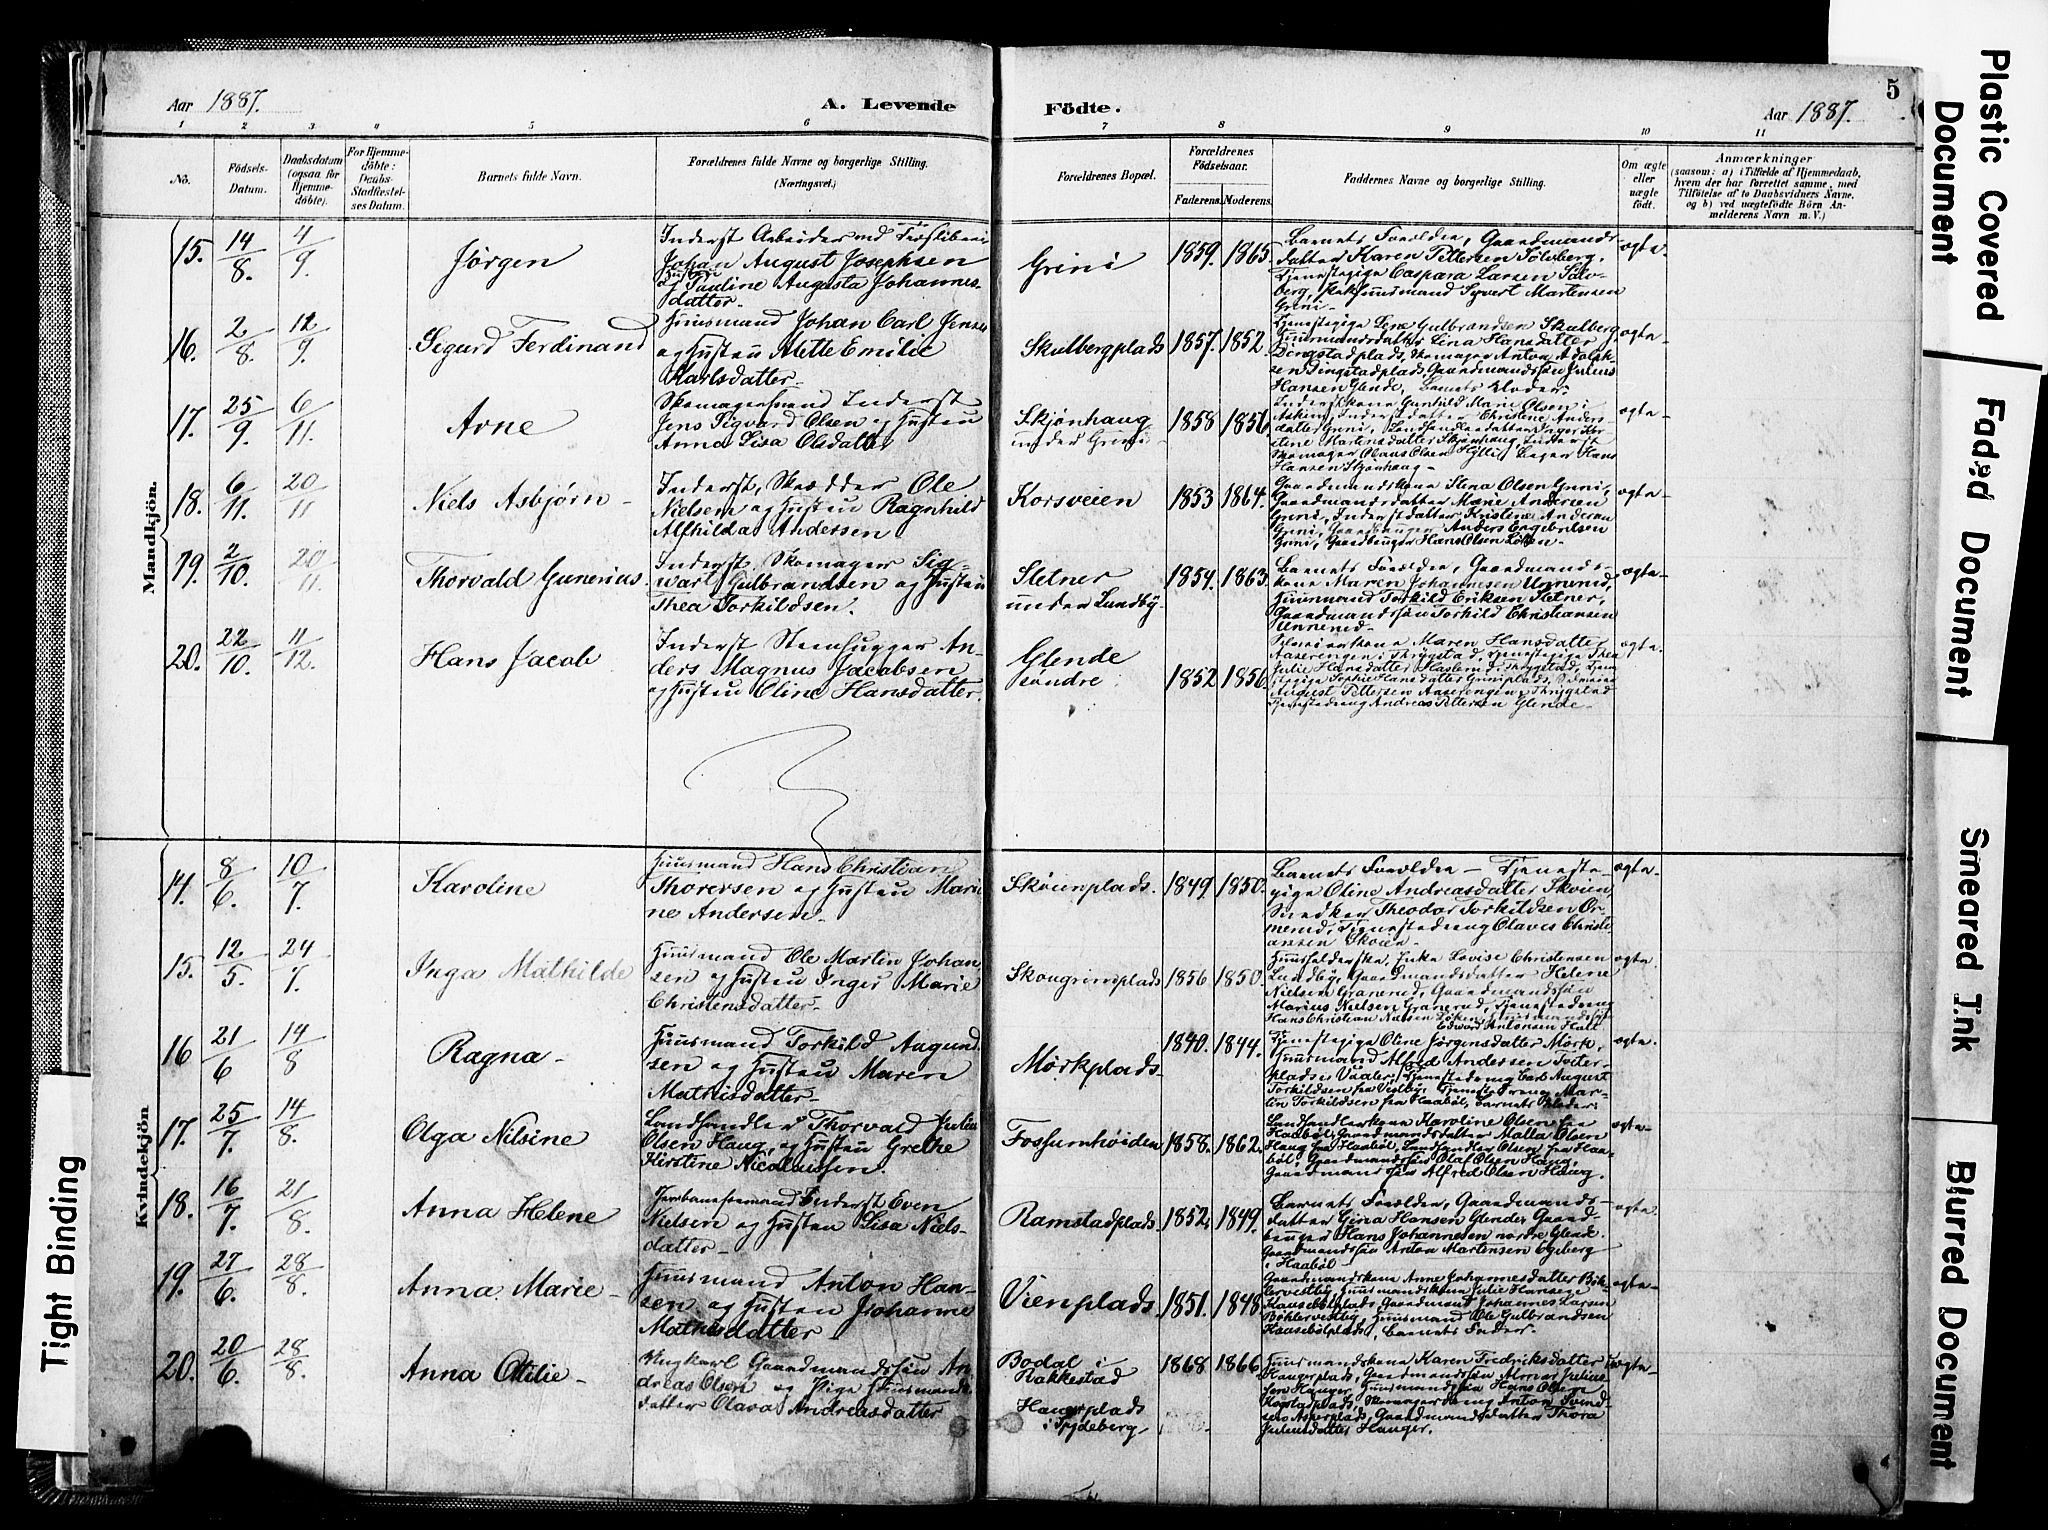 Aar 1887.
A. Levende
Födte.
Aar 1887.
5
1 2 3 4 5 6 7 8 9 10 11
No.
Födsels-
Datum.
Daabsdatum
(ogsaa for
Hjemme-
døbte).
For Hjemme-
døbte:
Daabs-
Stadfæstel-
ses Datum.
Barnets fulde Navn.
Forældrenes fulde Navne og borgerlige Stilling.
(Næringsvei.)
Forældrenes Bopæl.
Forældrenes
Födselsaar.
Faderens. Moderens.
Faddernes Navne og borgerlige Stilling.
Om ægte
eller
uægte
født.
Anmærkninger
(saasom: a) i Tilfælde af Hjemmedaab,
hvem der har forrettet samme, med
Tilföielse af to Daabsvidners Navne,
og b) ved uægtefödte Börn An-
melderens Navn m. V.)
Mandkjön.
15. 14/8. 4/9. Jørgen
Inderst Arbeider ved
Johan August Josephsen
og Hustru Pauline Augusta Johannes-
datter.
Grini 1859. 1865.
Barnets Forældre, Gaardmands-
datter Karen Pettersen Solberg,
Tjenestepige Caspara Larsen Sol-
berg, Husmand Syvert Martensen
Grini.
ægte.
16. 2/8. 12/9. Sigurd Ferdinand
Huusmand Johan Carl Jensen
og Hustru Mette Emilie
Karlsdatter.
Skulbergplads 1857. 1852.
Tjenestepige Lene Gulbrandsen Skulberg,
Huusmandsdatter Lina Hansdatter
Dingstadplads, Skomager Anton Adolph-
sen Dingstadplads, Gaardmandssøn Julius
Hansen Glende, Barnets Moder.
ægte-
17. 25/9. 6/11. Arne
Skomagersvend Inderst
Jens Sigvard Olsen og Hustru
Anna Lisa Olsdatter
Skjønhaug
under Grini 1858 1856
Inderstkone Gunhild Marie Olsen i
Askim, Inderstdatter Christine Anders-
datter Grini, Landhandlerdatter Inger Kir-
stine Martensdatter Skjønhaug, Inderst
Skomager Olaus Olsen Hylli, Bager Hans
Hansen Skjønhaug-
ægte-
18. 6/11. 20/11 Niels Asbjørn-
Inderst, Skrædder Ole
Nielsen og Hustru Ragnhild
Alfhilda Andersen
Korsveien 1853 1864.
Gaardmandskone Stena Olsen Grini,
Gaardmandsdatter Marie Andersen
Grini, Inderstdatter Kristine Andersen
Grini, Gaardbruger Anders Engebretsen
Grini, Gaardbruger Hans Olsen Løken.-
ægte-
19. 2/10. 20/11. Thorvald Gunerius.
Inderst Skomager Sig-
wart Gulbrandsen og Hustru
Thea Torkildsen.
Sletner
under Lundby. 1854. 1863.
Barnets Forældre, Gaardmands-
kone Maren Johannesen Unnerud,
Huusmand Torkild Eriksen Sletner,
Gaardmandssøn Torkild Christiansen
Unnerud-
ægte-
20. 22/10. 11/12. Hans Jacob
Inderst Stenhugger An-
ders Magnus Jacobsen
og Hustru Oline Hansdatter.
Glende
søndre. 1852 1856.
Selveierkone Maren Hansdatter
Aaserengen i Thrygstad, Tjenestepige Thea
Julie Hansdatter Haslerud i Thrygstad, Tjene-
stepige Sophie Hansdatter Griniplads, Selveier
August Pettersen Aaserengen i Thrygstad
Tjenestedreng Andreas Pettersen Glende-
ægte.
Kvindekjön
14. 8/6. 10/7. Karoline
Huusmand Hans Christian
Thoresen og Hustru Mari-
ne Andersen.
Skøienplads. 1849. 1850.
Barnets Forældre - Tjeneste-
pige Oline Andreasdatter Skøien,
Snedker Theodor Torkildsen Or-
merud, Tjenestedreng Olaves Christi-
ansen Skøien-
ægte.
15. 12/5. 24/7. Inga Mathilde
Huusmand Ole Martin Johan-
sen og Hustru Inger Marie
Christensdatter-
Skougriniplads 1856 1850.
Huusholderske, Enke Lovise Christensen
Lundby, Gaardmandsdatter Helene
Nielsen Granerud, Gaardmandssøn
Marius Nielsen Granerud, Tjenestedreng
Hans Christian Nielsen Løken, Huusmandssøn
Edvard Antonsen Hall
ægte.
16 21/6 14/8 Ragna-
Huusmand Torkild Aagund-
sen og Hustru Maren
Mathisdatter-
Mørkplads- 1840. 1844.
Tjenestepige Oline Jørgensdatter Mørk,
Huusmand Alfred Andersen Toter-
plads i Vaaler, Tjenestedreng Carl August
Torkildsen fra Vidby, Tjenestedreng Mar-
tin Torkildsen fra Haabøl, Barnets Moder.
ægte.
17. 25/7. 14/8. Olga Nilsine
Landhandler Thorvald Julius
Olsen Haug, og Hustru Grethe
Kirstine Nicolaissen.
Fossumhøiden 1858. 1862.
Landhandlerkone Karoline Olsen fra
Haabøl, Gaardmandsdatter Malla Olsen
Haug fra Haabøl, Landhandler Olsen fra Haa-
bøl, Gaardmandssøn Olaf Olsen Haug,
Gaardmandssøn Alfred Olsen Haug.
ægte-
18. 16/7. 21/8. Anna Helene
Jernbaneformand Inderst Even
Nielsen og Hustru Lisa Niels-
datter-
Ramstadplads. 1852. 1849.
Barnets Forældre, Gaardmands-
datter Gina Hansen Glende, Gaard-
bruger Hans Johannesen nordre Glende.
Gaardmandssøn Anton Martensen Egeberg
i Haabøl-
ægte.
19. 27/6. 28/8. Anna Marie-
Huusmand Anton Han-
sen og Hustru Johanne
Mathisdatter
Vienplads. 1851. 1848.
Gaardmandskone Anne Johannesdatter Bøh-
lervestby, Huusmandskone Julie Hansen
Kaasebølplads, Gaardmand Johannes Larsen
Bøhlervestby, Huusmand Ole Gulbrandsen
Kaasebølplads, Barnets Fader.
ægte-
20. 20/6. 28/8. Anna Otilie-
Ungkarl Gaardmandssøn An-
dreas Olsen og Pige Huusmands-
datter Olava Andreasdatter
Bodal i
Rakkestad
Haugerplads
i Spydeberg 1868 1866.
Huusmandskone Karen Fredriksdatter
Haugerplads, Gaardmandssøn Morten Juliu-
sen Hauger, Huusmandssøn Hans Olsen
Kogstadplads, Skomagerdreng Anton Svend-
sen Askerplads, Gaardmandsdatter Thora
Juliusdatter Hauger.
uægte-
Plastic Covered
Document
Faded Document
Smeared Ink
Blurred Document
Tight Binding